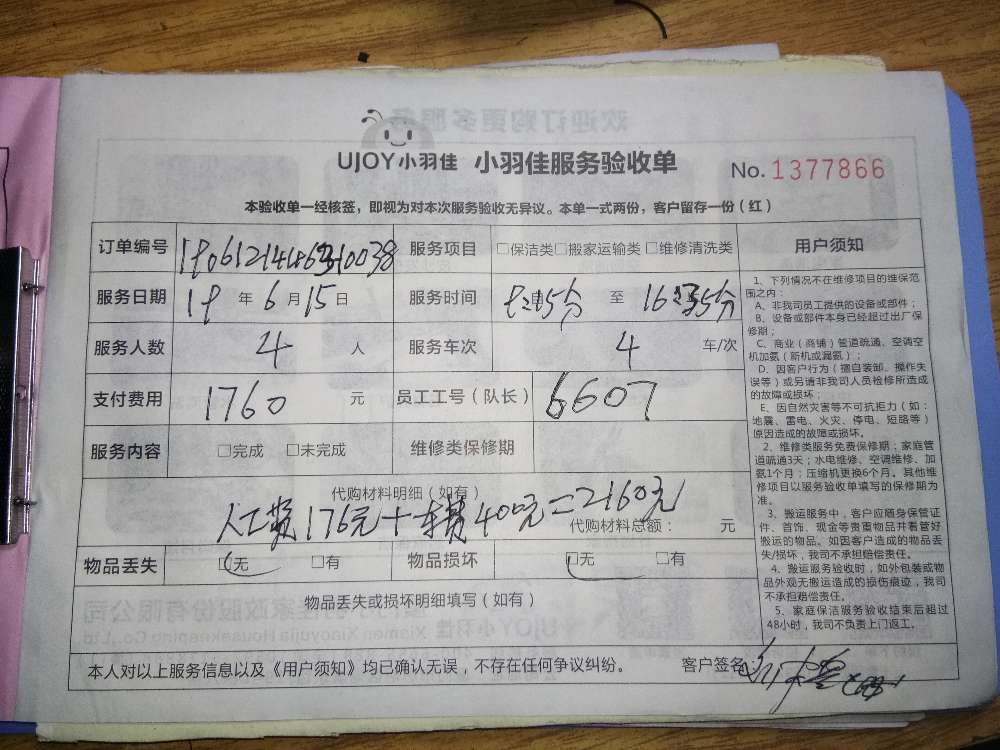 UJOY小羽佳 小羽佳服务验收单 No. 1377866
本验收单一经核签，即视为对本次服务验收无异议。本单一式两份，客户留存一份（红）
订单编号 服务项目 □保洁类□搬家运输类□维修清洗类
服务日期 19年6月15日 服务时间 至
服务人数 4 人 服务车次 4 车/次
支付费用 1760 元 员工工号（队长） 6607
服务内容 □完成 □未完成 维修类保修期
代购材料明细（如有）
人工费176元+车费400元=2160元
代购材料总额： 元
物品丢失 □无 □有 物品损坏 □无 □有
物品丢失或损坏明细填写（如有）
本人对以上服务信息以及《用户须知》均已确认无误，不存在任何争议纠纷。 客户签名：
用户须知
1、下列情况不在维修项目的维保范
围之内：
A、非我司员工提供的设备或部件；
B、设备或部件本身已经超过出厂保
修期；
C、商业（商铺）管道疏通、空调空
机加氨（新机或漏氨）；
D、因客户行为（擅自装卸、操作失
误等）或另请非我司人员检修所造成
的故障或损坏；
E、因自然灾害等不可抗拒力（如：
地震、雷电、火灾、停电、短路等）
原因造成的故障或损坏。
2、维修类服务免费保修期：家庭管
道疏通3天；水电维修、空调维修、加
氨1个月；压缩机更换6个月。其他维
修项目以服务验收单填写的保修期为
准。
3、搬运服务中，客户应随身保管证
件、首饰、现金等贵重物品并看管好
搬运的物品。如因客户造成的物品丢
失/损坏，我司不承担赔偿责任。
4、搬运服务验收时，如外包装或物
品外观无搬运造成的损伤痕迹，我司
不承担赔偿责任。
5、家庭保洁服务验收结束后超过
48小时，我司不负责上门返工。